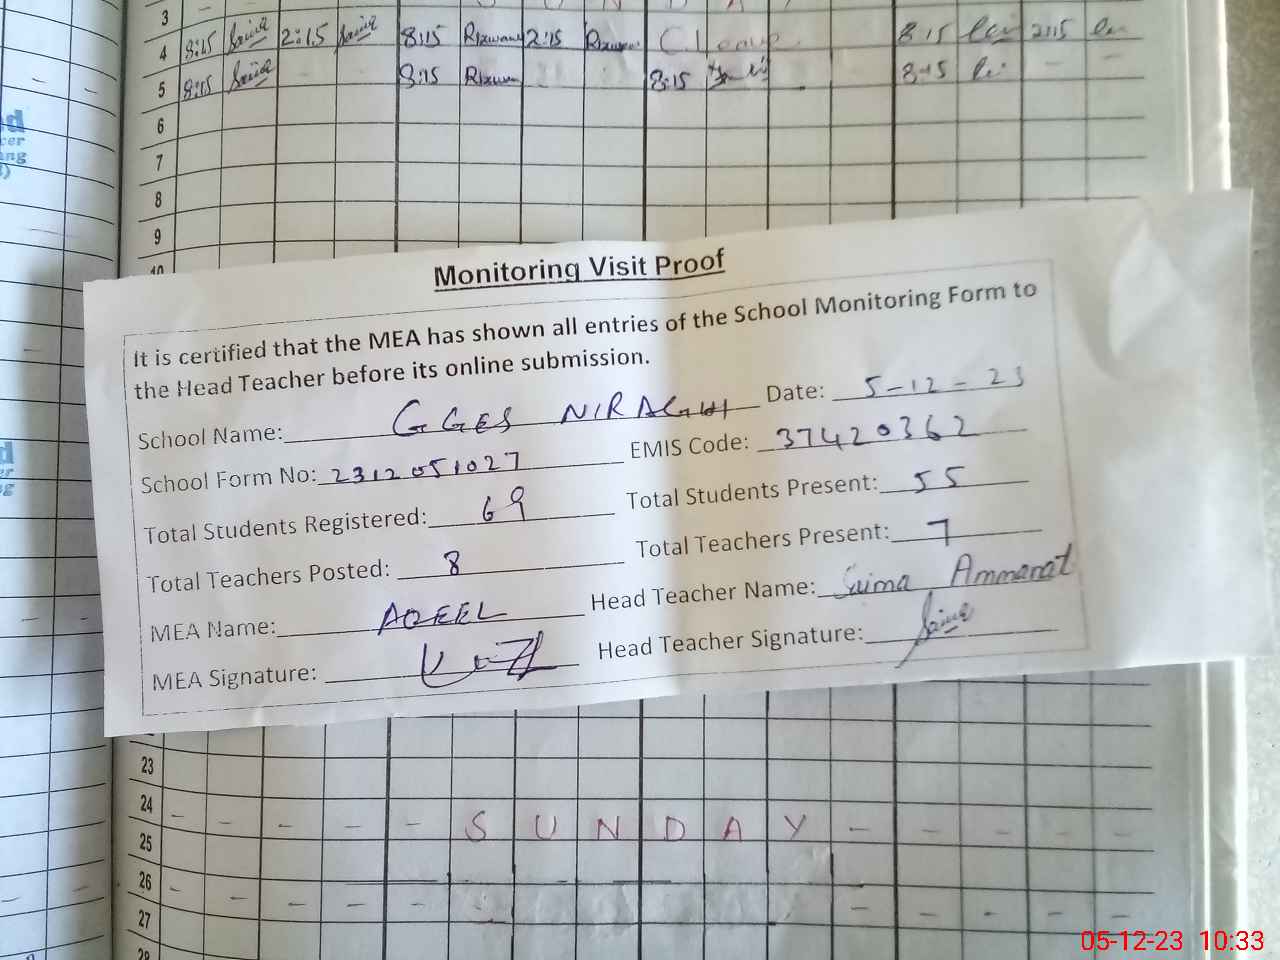 3
4 8:15 Saima 2:15 Saima 8:15 Rizwan 2:15 Rizwan C Leave 8:15 2:15
5 8:15 Saima 8:15 Rizwan 8:15 8:15
6
7
8
9
10
Monitoring Visit Proof
It is certified that the MEA has shown all entries of the School Monitoring Form to
the Head Teacher before its online submission.
School Name: GGES NIRAGHI Date: 5-12-23
School Form No: 2312051027 EMIS Code: 37420362
Total Students Registered: 69 Total Students Present: 55
Total Teachers Posted: 8 Total Teachers Present: 7
MEA Name: AQEEL Head Teacher Name: Saima Ammanat
MEA Signature: Head Teacher Signature: Saima
23
24
25 SUNDAY
26
27
28
05-12-23 10:33